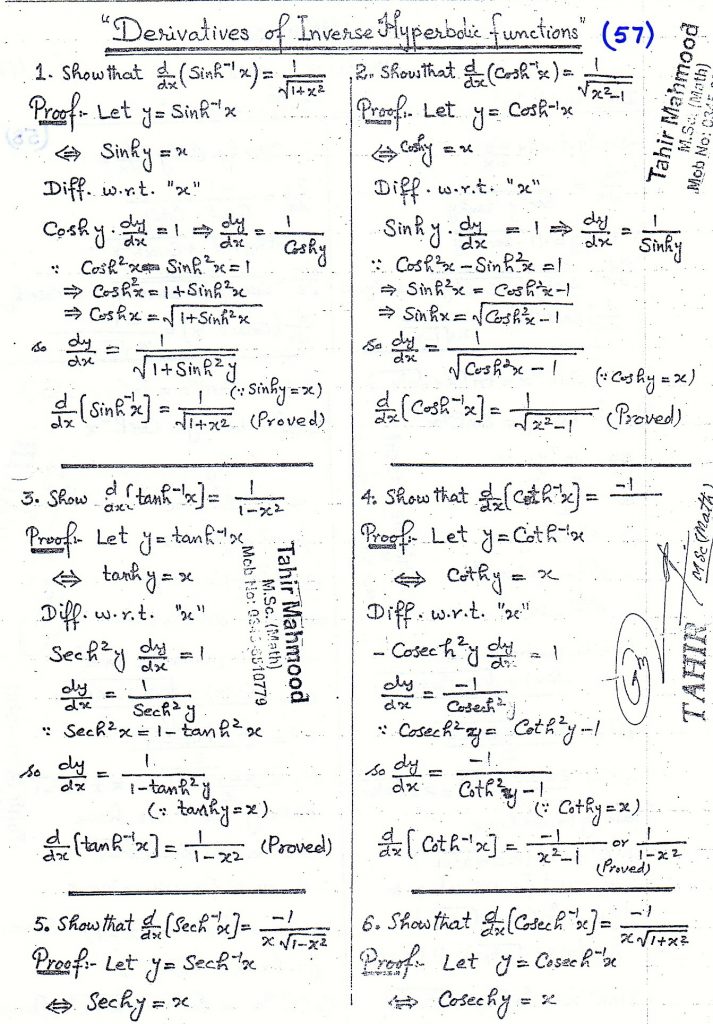 "Derivatives of Inverse Hyperbolic functions" (57)
1. Show that d/dx (Sinh⁻¹ x) = 1/√1+x²
Proof:- Let y = Sinh⁻¹x
⇔ Sinhy = x
Diff. w.r.t. "x"
Coshy . dy/dx = 1 ⇒ dy/dx = 1/Coshy
∵ Cosh²x - Sinh²x = 1
⇒ Cosh²x = 1+Sinh²x
⇒ Coshx = √1+Sinh²x
so dy/dx = 1/√1+Sinh²y
(∵ Sinhy = x)
d/dx [Sinh⁻¹x] = 1/√1+x² (Proved)
2. Show that d/dx (Cosh⁻¹x) = 1/√x²-1
Proof:- Let y = Cosh⁻¹x
⇔ Coshy = x
Diff. w.r.t. "x"
Sinhy . dy/dx = 1 ⇒ dy/dx = 1/Sinhy
∵ Cosh²x - Sinh²x = 1
⇒ Sinh²x = Cosh²x-1
⇒ Sinhx = √Cosh²x-1
so dy/dx = 1/√Cosh²x - 1
(∵ Coshy = x)
d/dx [Cosh⁻¹x] = 1/√x²-1 (Proved)
Tahir Mahmood
M.Sc. (Math)
Mob No:
3. Show d/dx [tanh⁻¹x] = 1/1-x²
Proof:- Let y = tanh⁻¹x
⇔ tanhy = x
Diff. w.r.t. "x"
Sech²y dy/dx = 1
dy/dx = 1/Sech²y
∵ Sech²x = 1-tanh²x
so dy/dx = 1/1-tanh²y
(∵ tanhy = x)
d/dx [tanh⁻¹x] = 1/1-x² (Proved)
Tahir Mahmood
M.Sc. (Math)
Mob No:
4. Show that d/dx [Coth⁻¹x] = -1
Proof:- Let y = Coth⁻¹x
⇔ Cothy = x
Diff. w.r.t. "x"
- Cosech²y dy/dx = 1
dy/dx = -1/Cosech²y
∵ Cosech²y = Coth²y-1
so dy/dx = -1/Coth²y-1
(∵ Cothy = x)
d/dx [Coth⁻¹x] = -1/x²-1 or 1/1-x²
(Proved)
TAHIR
M.Sc (Math)
5. Show that d/dx [Sech⁻¹x] = -1/x√1-x²
Proof:- Let y = Sech⁻¹x
⇔ Sechy = x
6. Show that d/dx [Cosech⁻¹x] = -1/x√1+x²
Proof:- Let y = Cosech⁻¹x
⇔ Cosechy = x